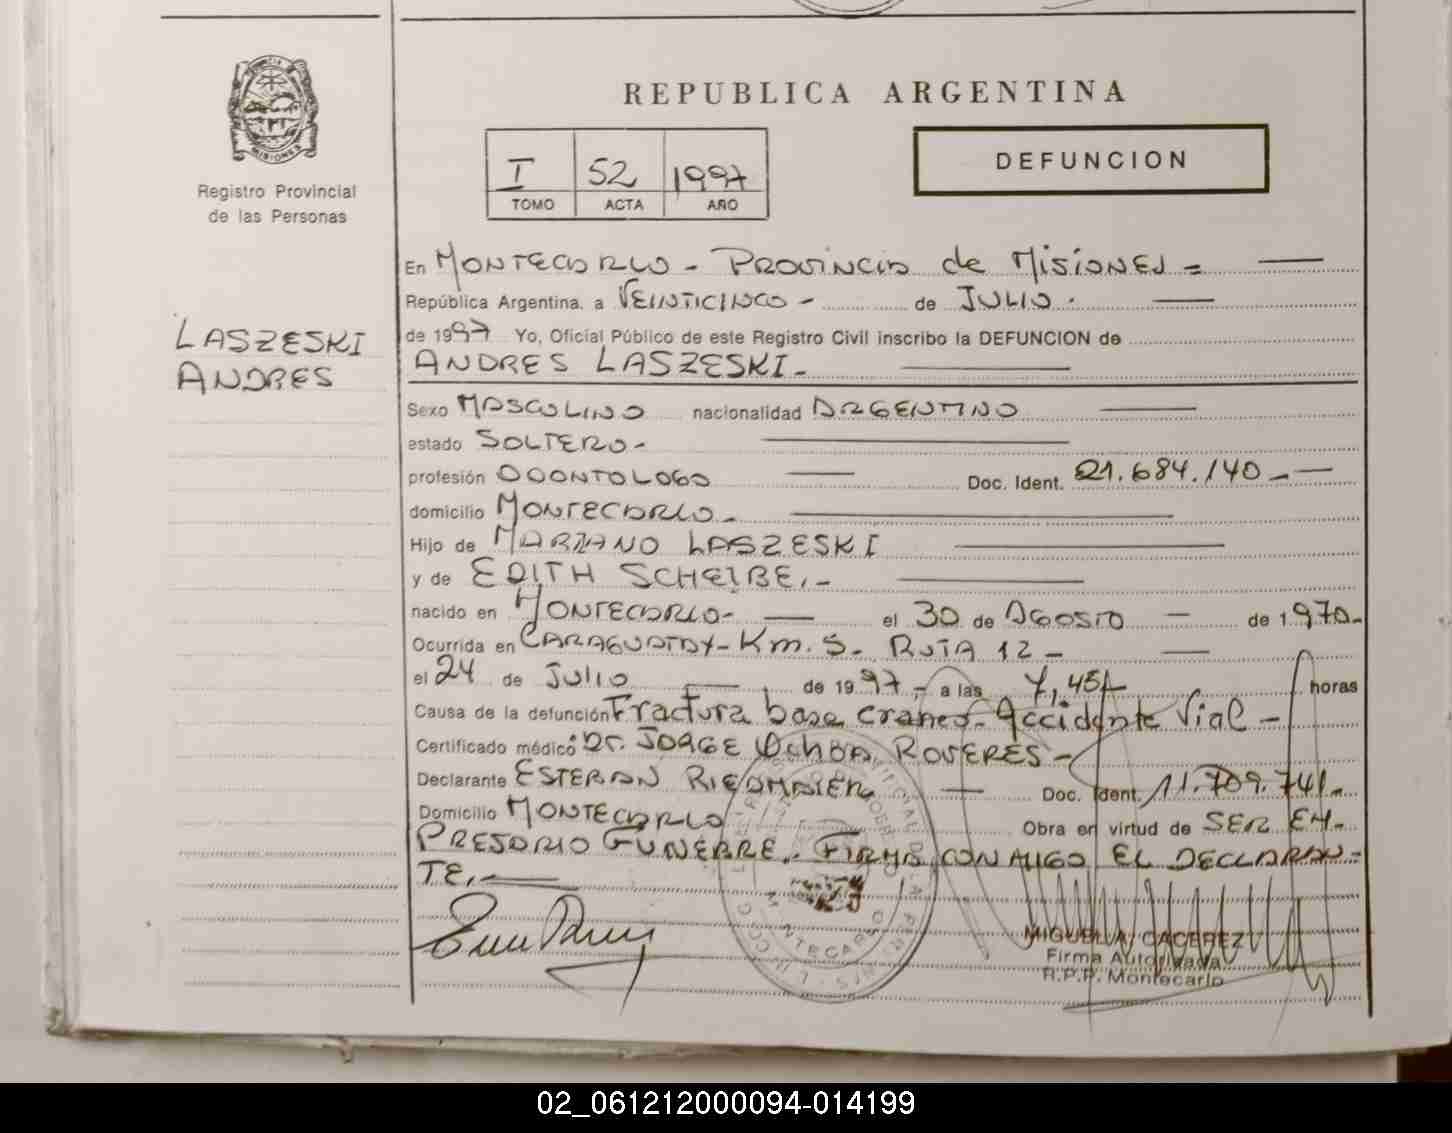 REPUBLICA ARGENTINA
MISIONES
Registro Provincial
de las Personas
I 52 1997
TOMO ACTA AÑO
DEFUNCION
LASZESKI
ANDRES
En MONTECARLO - PROVINCIA de MISIONES =
República Argentina. a VEINTICINCO - de JULIO.
de 1997 Yo, Oficial Público de este Registro Civil inscribo la DEFUNCION de
ANDRES LASZESKI.-
Sexo MASCULINO nacionalidad ARGENTINO
estado SOLTERO.-
profesión ODONTOLOGO Doc. Ident. 21.684.140.-
domicilio MONTECARLO.-
Hijo de MARIANO LASZESKI
y de EDITH SCHEIBE.-
nacido en MONTECARLO- el 30 de AGOSTO de 1.970.-
Ocurrida en CARAGUATAY - Km. 5 - RUTA 12 -
el 24 de JULIO de 1997.- a las 7,45 horas
Causa de la defunción Fractura base craneo - Accidente Vial -
Certificado médico Dr. JORGE OCHOA ROVERES -
Declarante ESTEBAN Doc. Ident. 11.709.741.-
Domicilio MONTECARLO Obra en virtud de SER EM-
PRESARIO FUNEBRE.- FIRMA CONMIGO EL DECLARAN-
TE.-
MONTECARLO
MIGUEL A. CACEREZ
Firma Autorizada
R.P.P. Montecarlo
02_061212000094-014199